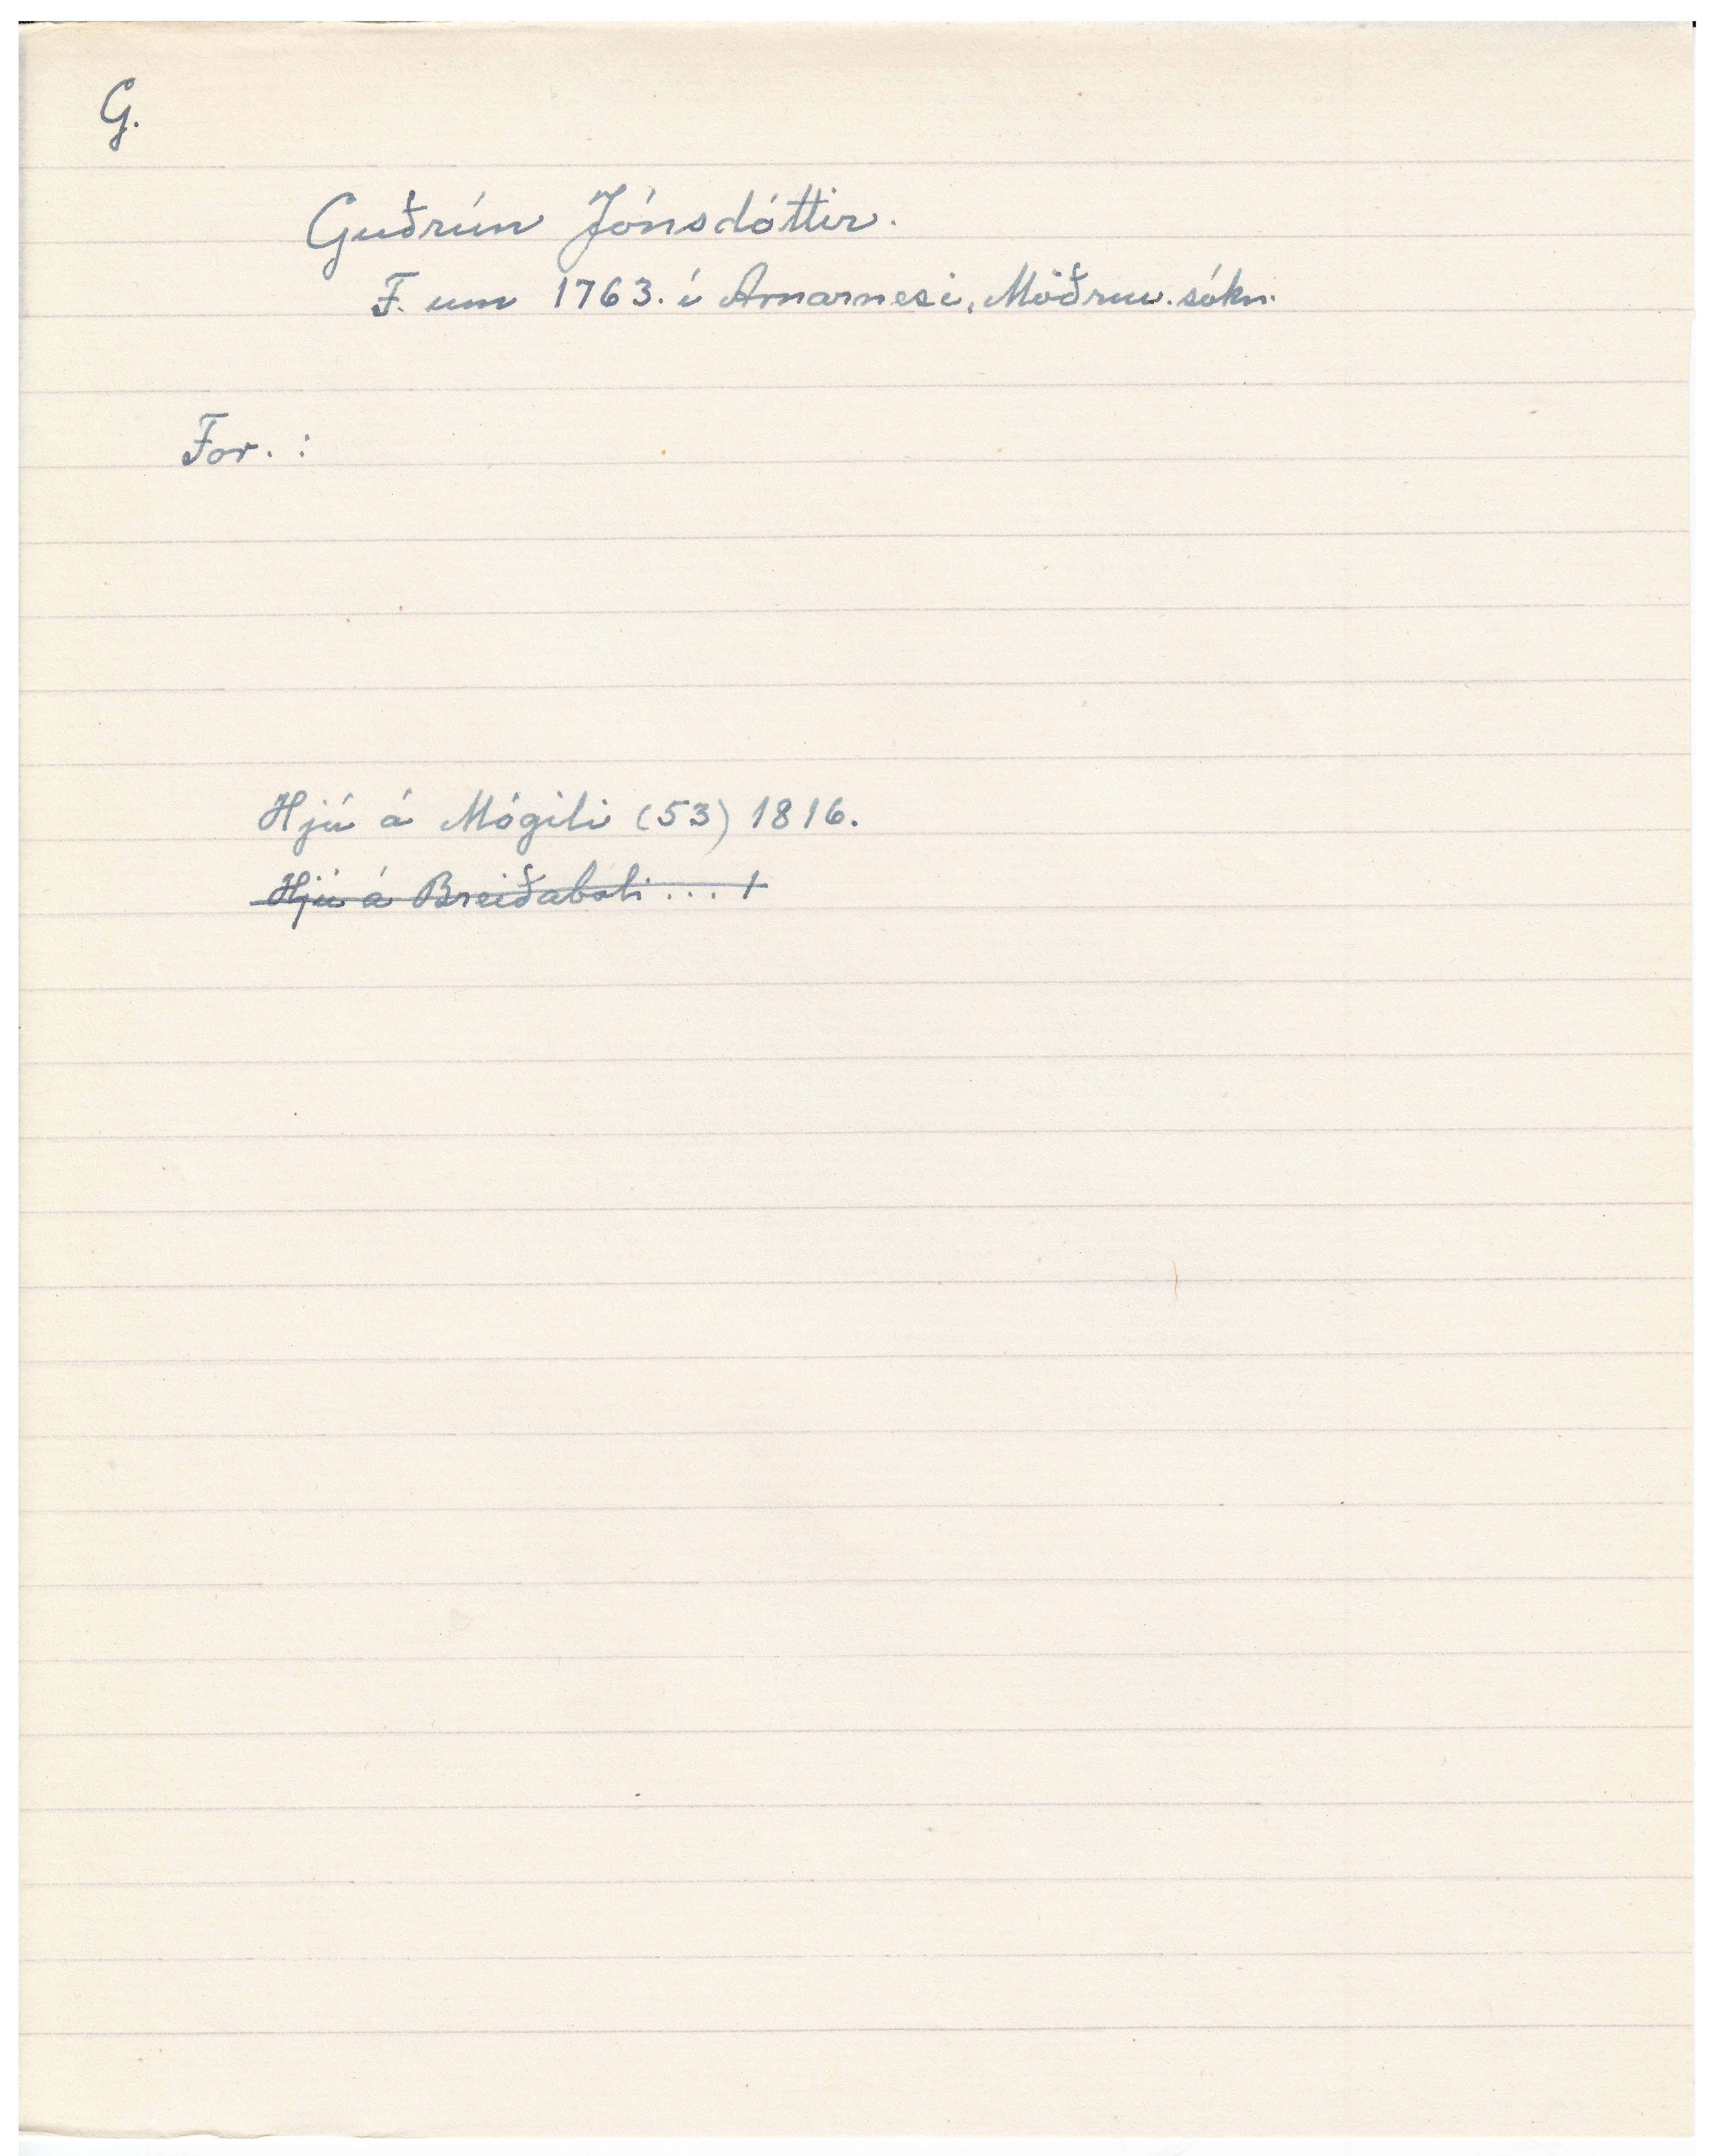 G.
Guðrún Jónsdóttir.
F. um 1763. í Arnarnesi, Möðruv. sókn.
For. :
Hjú á Mógili (53) 1816.
Hjú á Breiðabóli ... 1